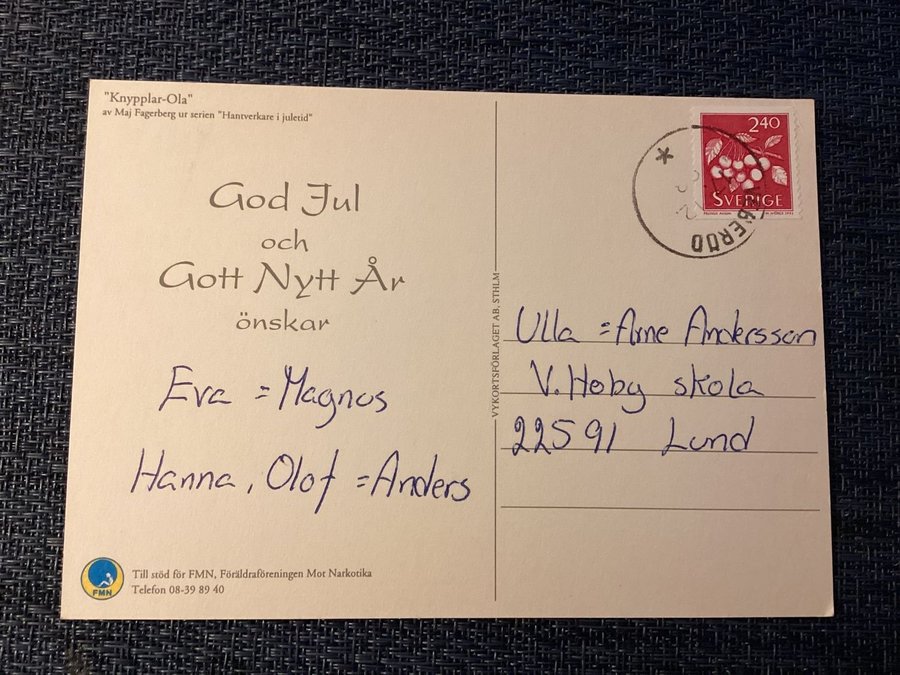 "Knypplar-Ola"
av Maj Fagerberg ur serien "Hantverkare i juletid"
God Jul
och
Gott Nytt År
önskar
Eva = Magnus
Hanna, Olof = Anders
FMN
Till stöd för FMN, Föräldraföreningen Mot Narkotika
Telefon 08-39 89 40
VYKORTSFÖRLAGET AB, STHLM
240
SVERIGE
Ulla = Arne Andersson
V. Hoby skola
22591 Lund